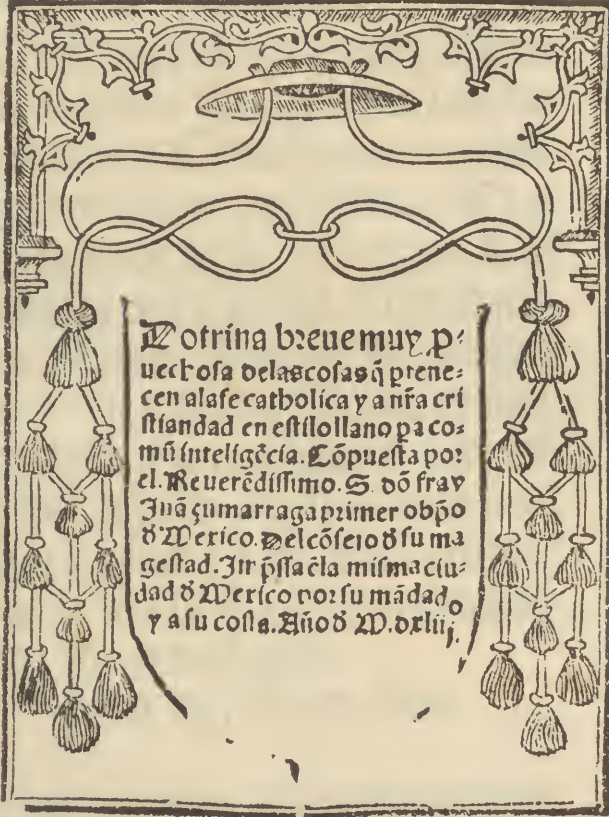 Dotrina breue muy ꝓ-
uechosa delas cosas q̃ ꝑtene-
cen ala fe catholica y a nr̃a cri
stiandad en estilo llano ꝑa co-
mũ inteligẽcia. Cõpuesta por
el. Reuerẽdissimo. S. dõ fray
Juã çumarraga primer obp̃o
đ Mexico. Del cõsejo đ su ma
gestad. Impr̃ssa ẽla misma ciu-
dad đ Mexico por su mãdado
y a su costa. Año đ M.dxliij.